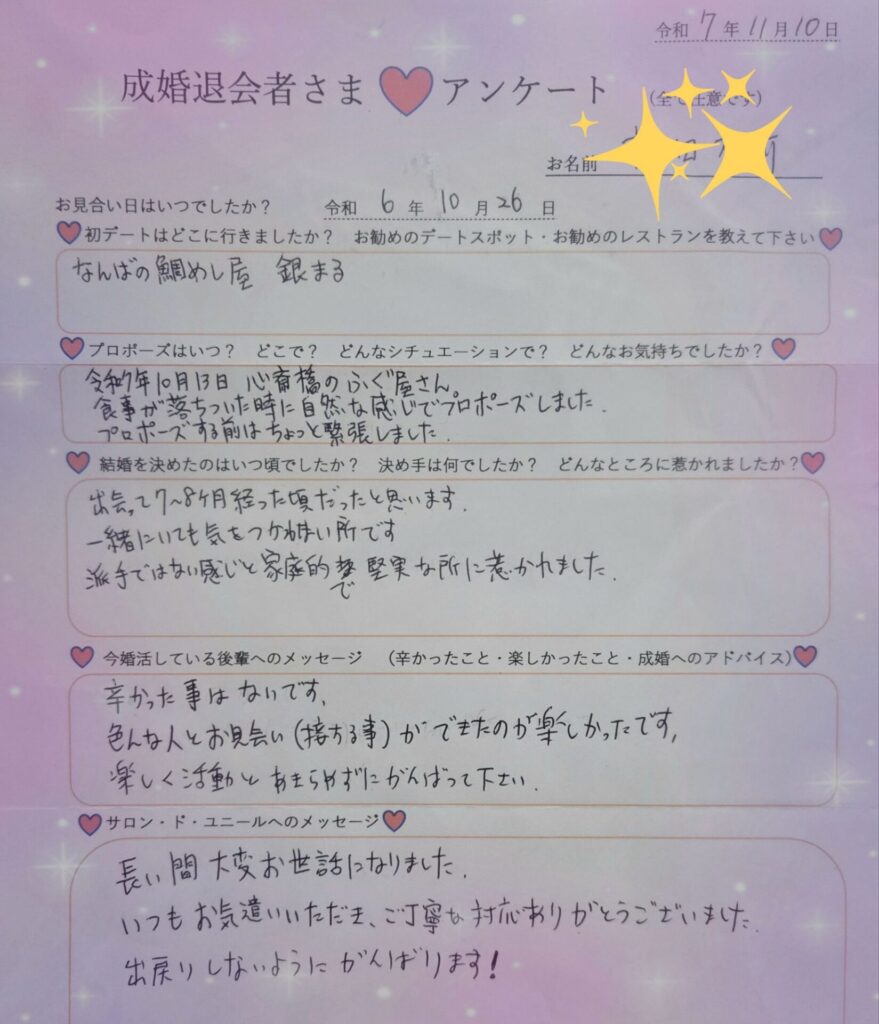 令和 7 年 11 月 10 日
成婚退会者さま アンケート (全て任意です)
お名前
お見合い日はいつでしたか? 令和 6 年 10 月 26 日
初デートはどこに行きましたか? お勧めのデートスポット・お勧めのレストランを教えて下さい
なんばの鯛めし屋 銀まる
プロポーズはいつ? どこで? どんなシチュエーションで? どんなお気持ちでしたか?
令和7年10月13日 心斎橋のふぐ屋さん
食事が落ちついた時に自然な感じでプロポーズしました.
プロポーズする前はちょっと緊張しました.
結婚を決めたのはいつ頃でしたか? 決め手は何でしたか? どんなところに惹かれましたか?
出会って7〜8ヶ月経った頃だったと思います.
一緒にいても気をつかわない所です
派手ではない感じと家庭的で堅実な所に惹かれました.
今婚活している後輩へのメッセージ (辛かったこと・楽しかったこと・成婚へのアドバイス)
辛かった事はないです,
色んな人とお見会い(接する事)ができたのが楽しかったです,
楽しく活動とあきらめずにがんばって下さい.
サロン・ド・ユニールへのメッセージ
長い間大変お世話になりました.
いつもお気遣いいただき、ご丁寧な対応ありがとうございました.
出戻りしないようにがんばります!